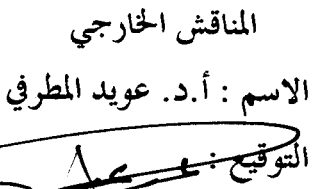 المناقش الخارجي
الاسم : أ.د. عويد المطرفي
التوقيع :